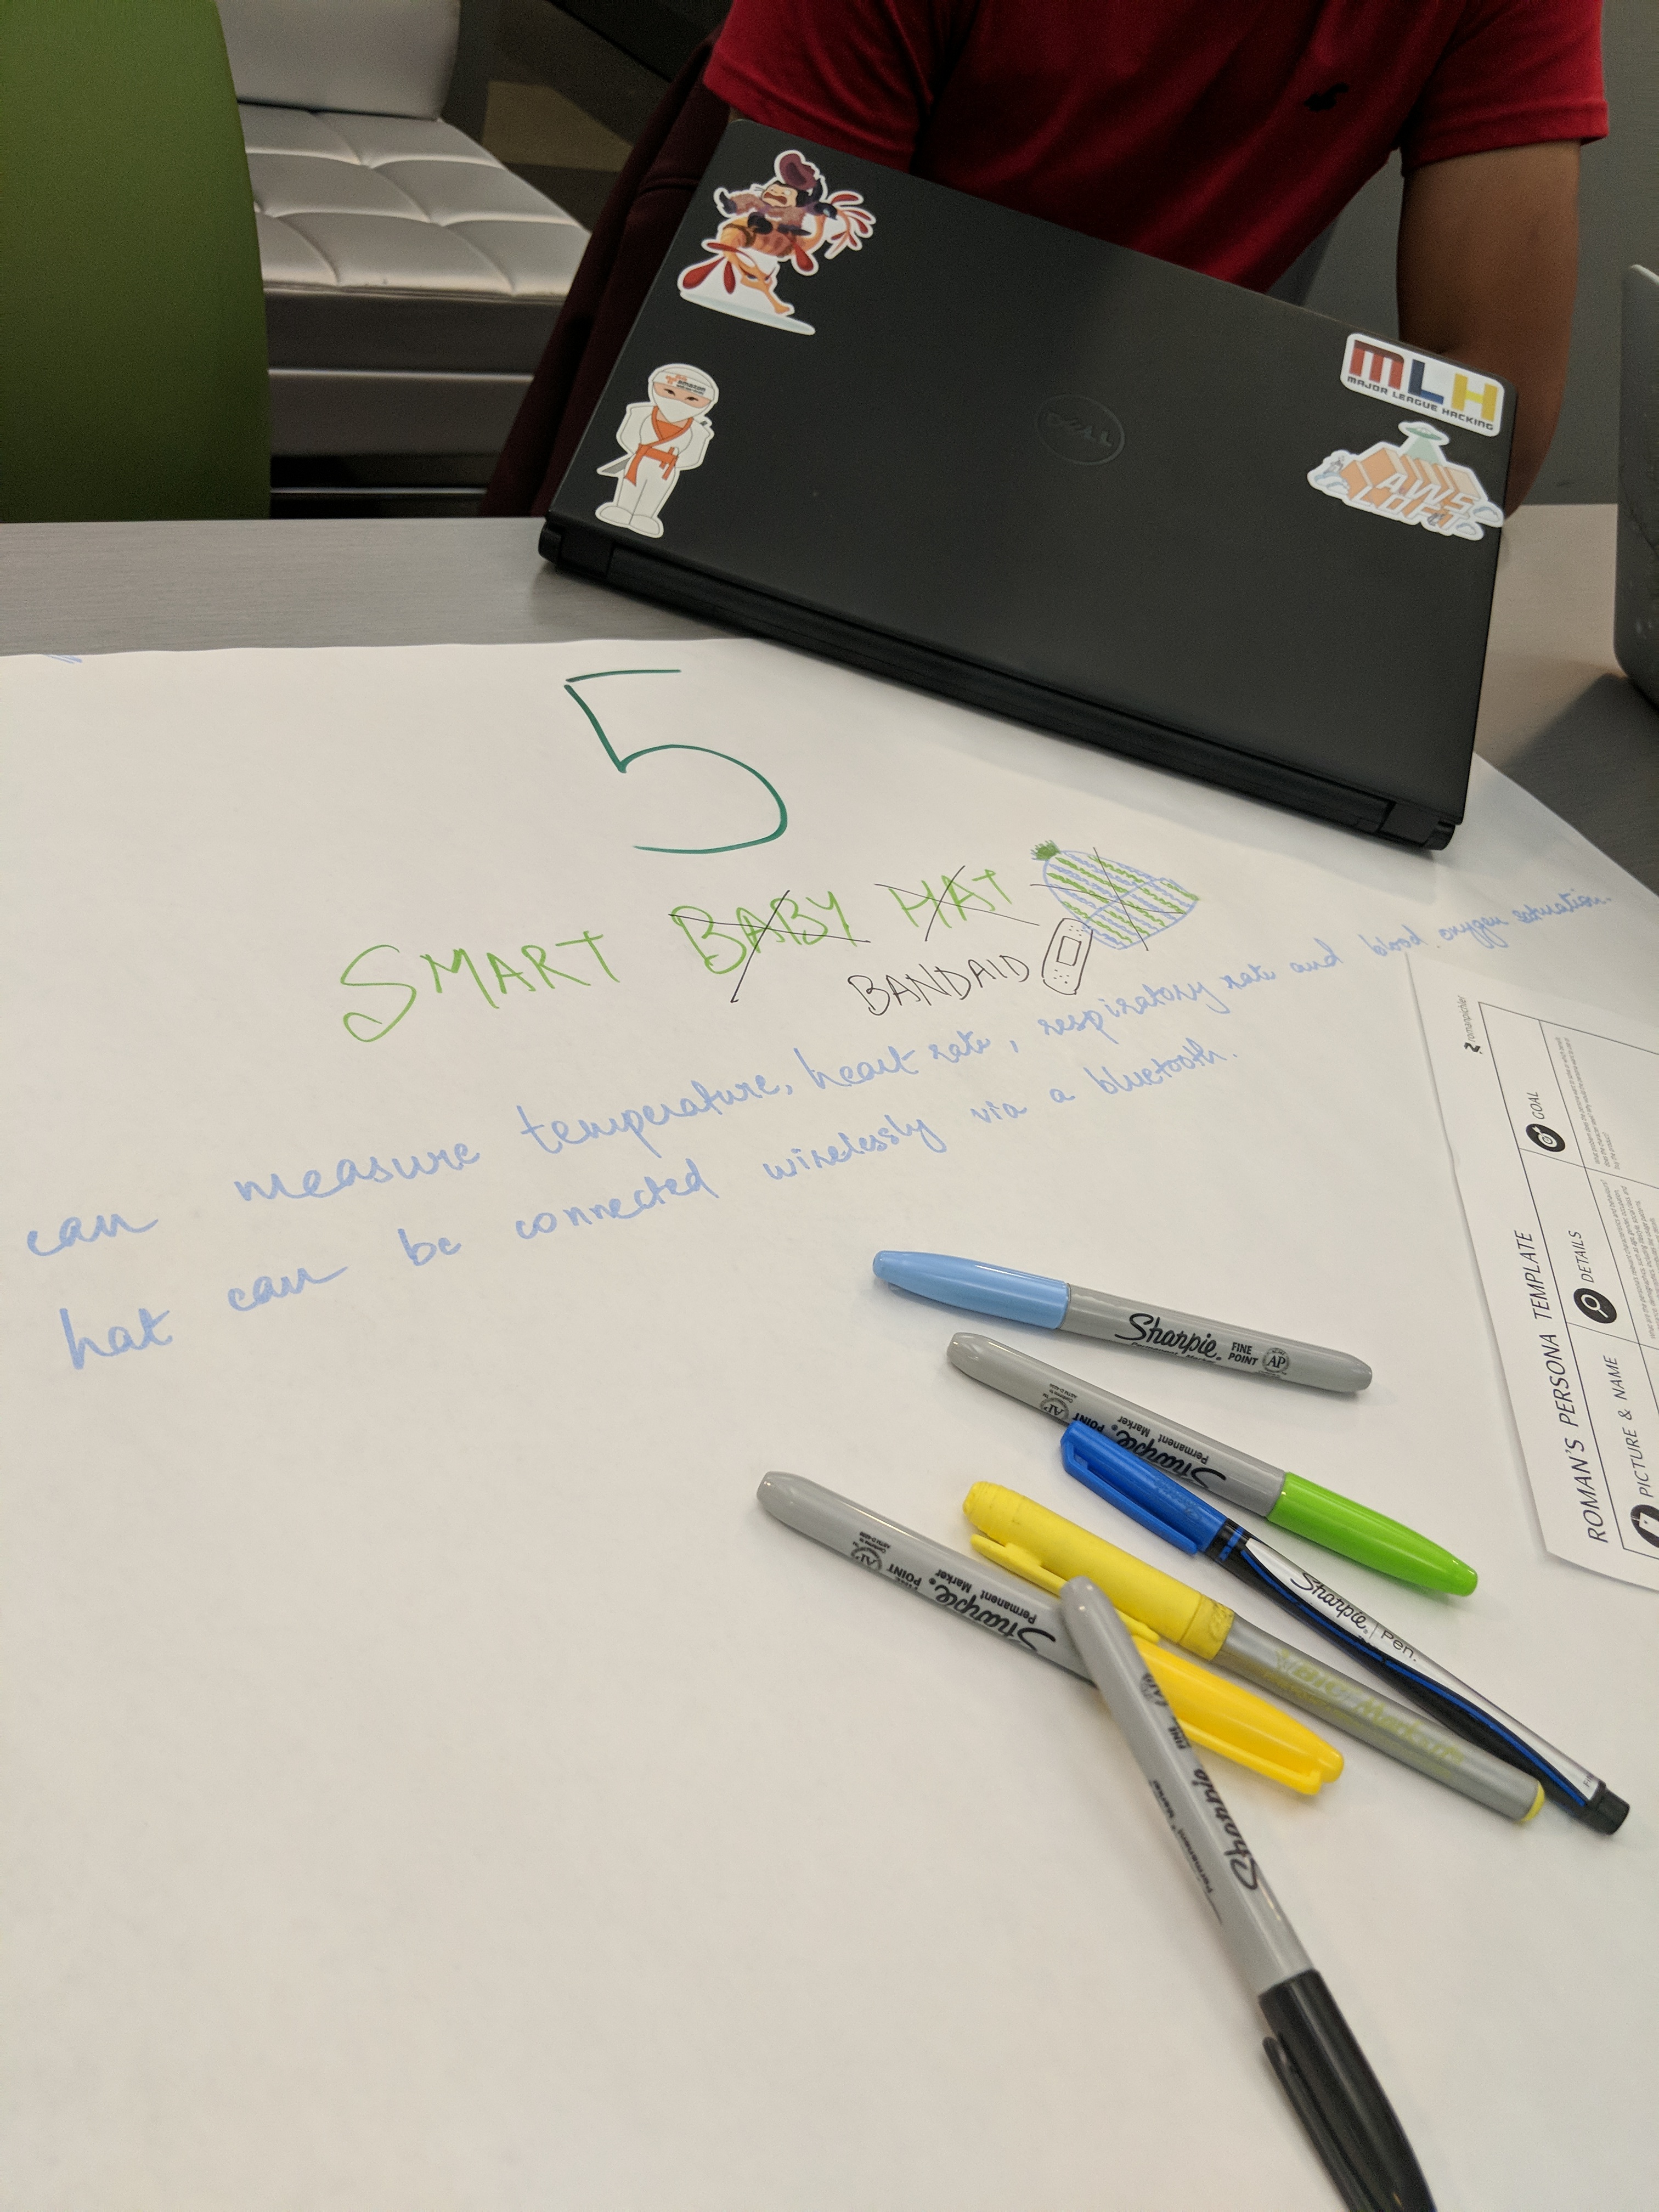 amazon
MLH
MAJOR LEAGUE HACKING
DELL
AWS
LOFT
5
SMART BABY HAT
BANDAID
can measure temperature, heart rate, respiratory rate and blood oxygen satuation.
hat can be connected wirelessly via a bluetooth.
romanpichler
ROMAN'S PERSONA TEMPLATE
PICTURE & NAME
DETAILS
GOAL
Sharpie.
FINE
POINT
AP
Sharpie.
Permanent Marker
POINT
AP
Sharpie. Pen.
Sharpie.
Permanent Marker
FINE
POINT
AP
Sharpie
Permanent Marker
FINE